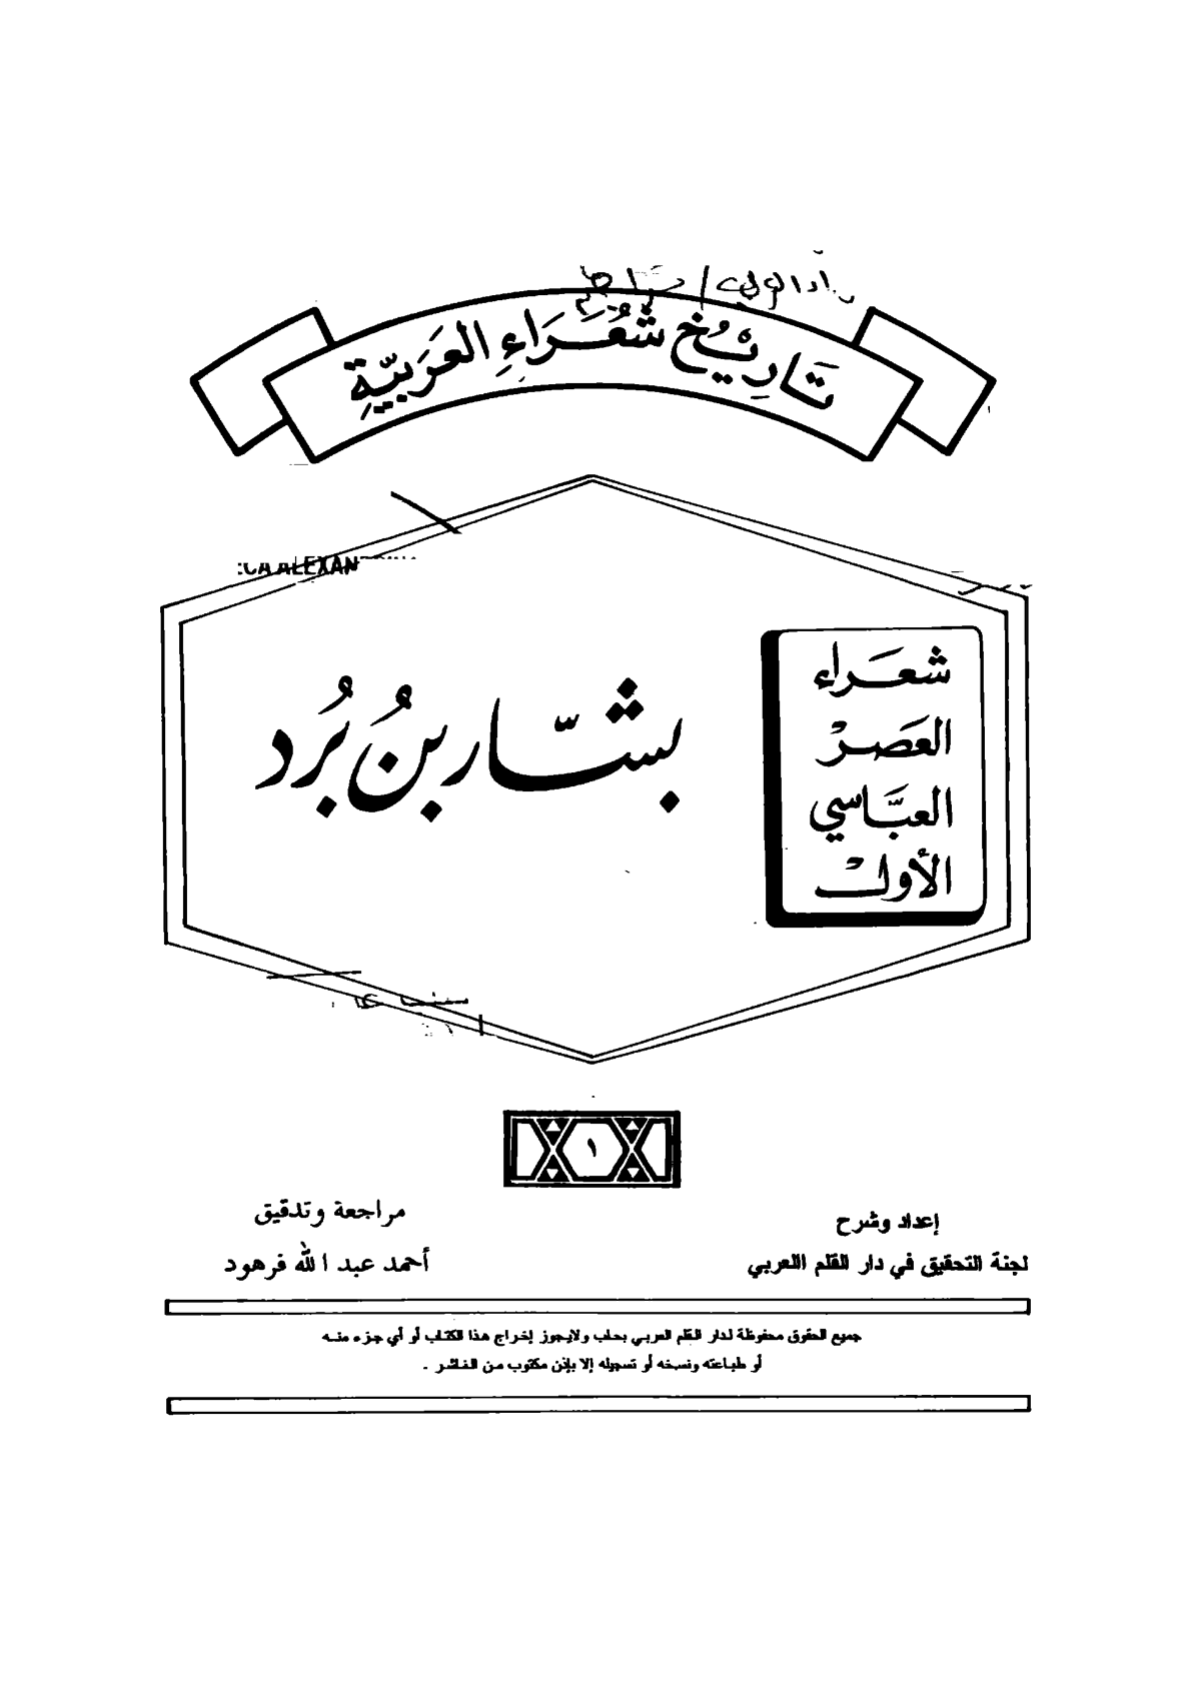 تَارِيْخُ شُعَرَاءِ العَرَبِيَّةِ
شعَراء
العَصرْ
العبَّاسي
الأولْ
بشَّار بنُ بُرد
١
إعداد وشرح
لجنة التحقيق في دار القلم العربي
مراجعة وتدقيق
أحمد عبد الله فرهود
جميع الحقوق محفوظة لدار القلم العربي بحلب ولايجوز إخراج هذا الكتاب أو أي جزء منه
أو طباعته ونسخه أو تسجيله إلا بإذن مكتوب من الناشر .